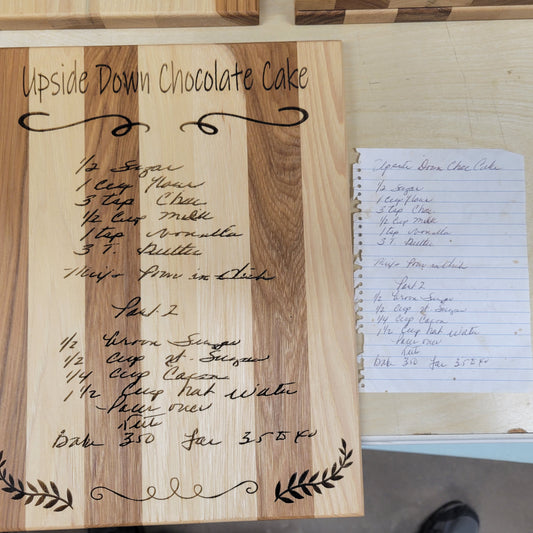 Upside Down Chocolate Cake
1/2 Sugar
1 cup flour
3 tsp Choc
1/2 cup Milk
1 tsp vanilla
3 T. Butter
Mix + Pour in dish
Part 2
1/2 Brown Sugar
1/2 Cup wt. Sugar
1/4 Cup Cacoa
1 1/2 Cup hot Water
Pour over
Bake 350 for 35 to 40
Upside Down Choc Cake
1/2 Sugar
1 cup flour
3 tsp Choc
1/2 cup Milk
1 tsp vanilla
3 T. Butter
Mix + Pour in dish
Part 2
1/2 Brown Sugar
1/2 Cup wt. Sugar
1/4 Cup Cacoa
1 1/2 Cup hot Water
Pour over
Bake 350 for 35 to 40